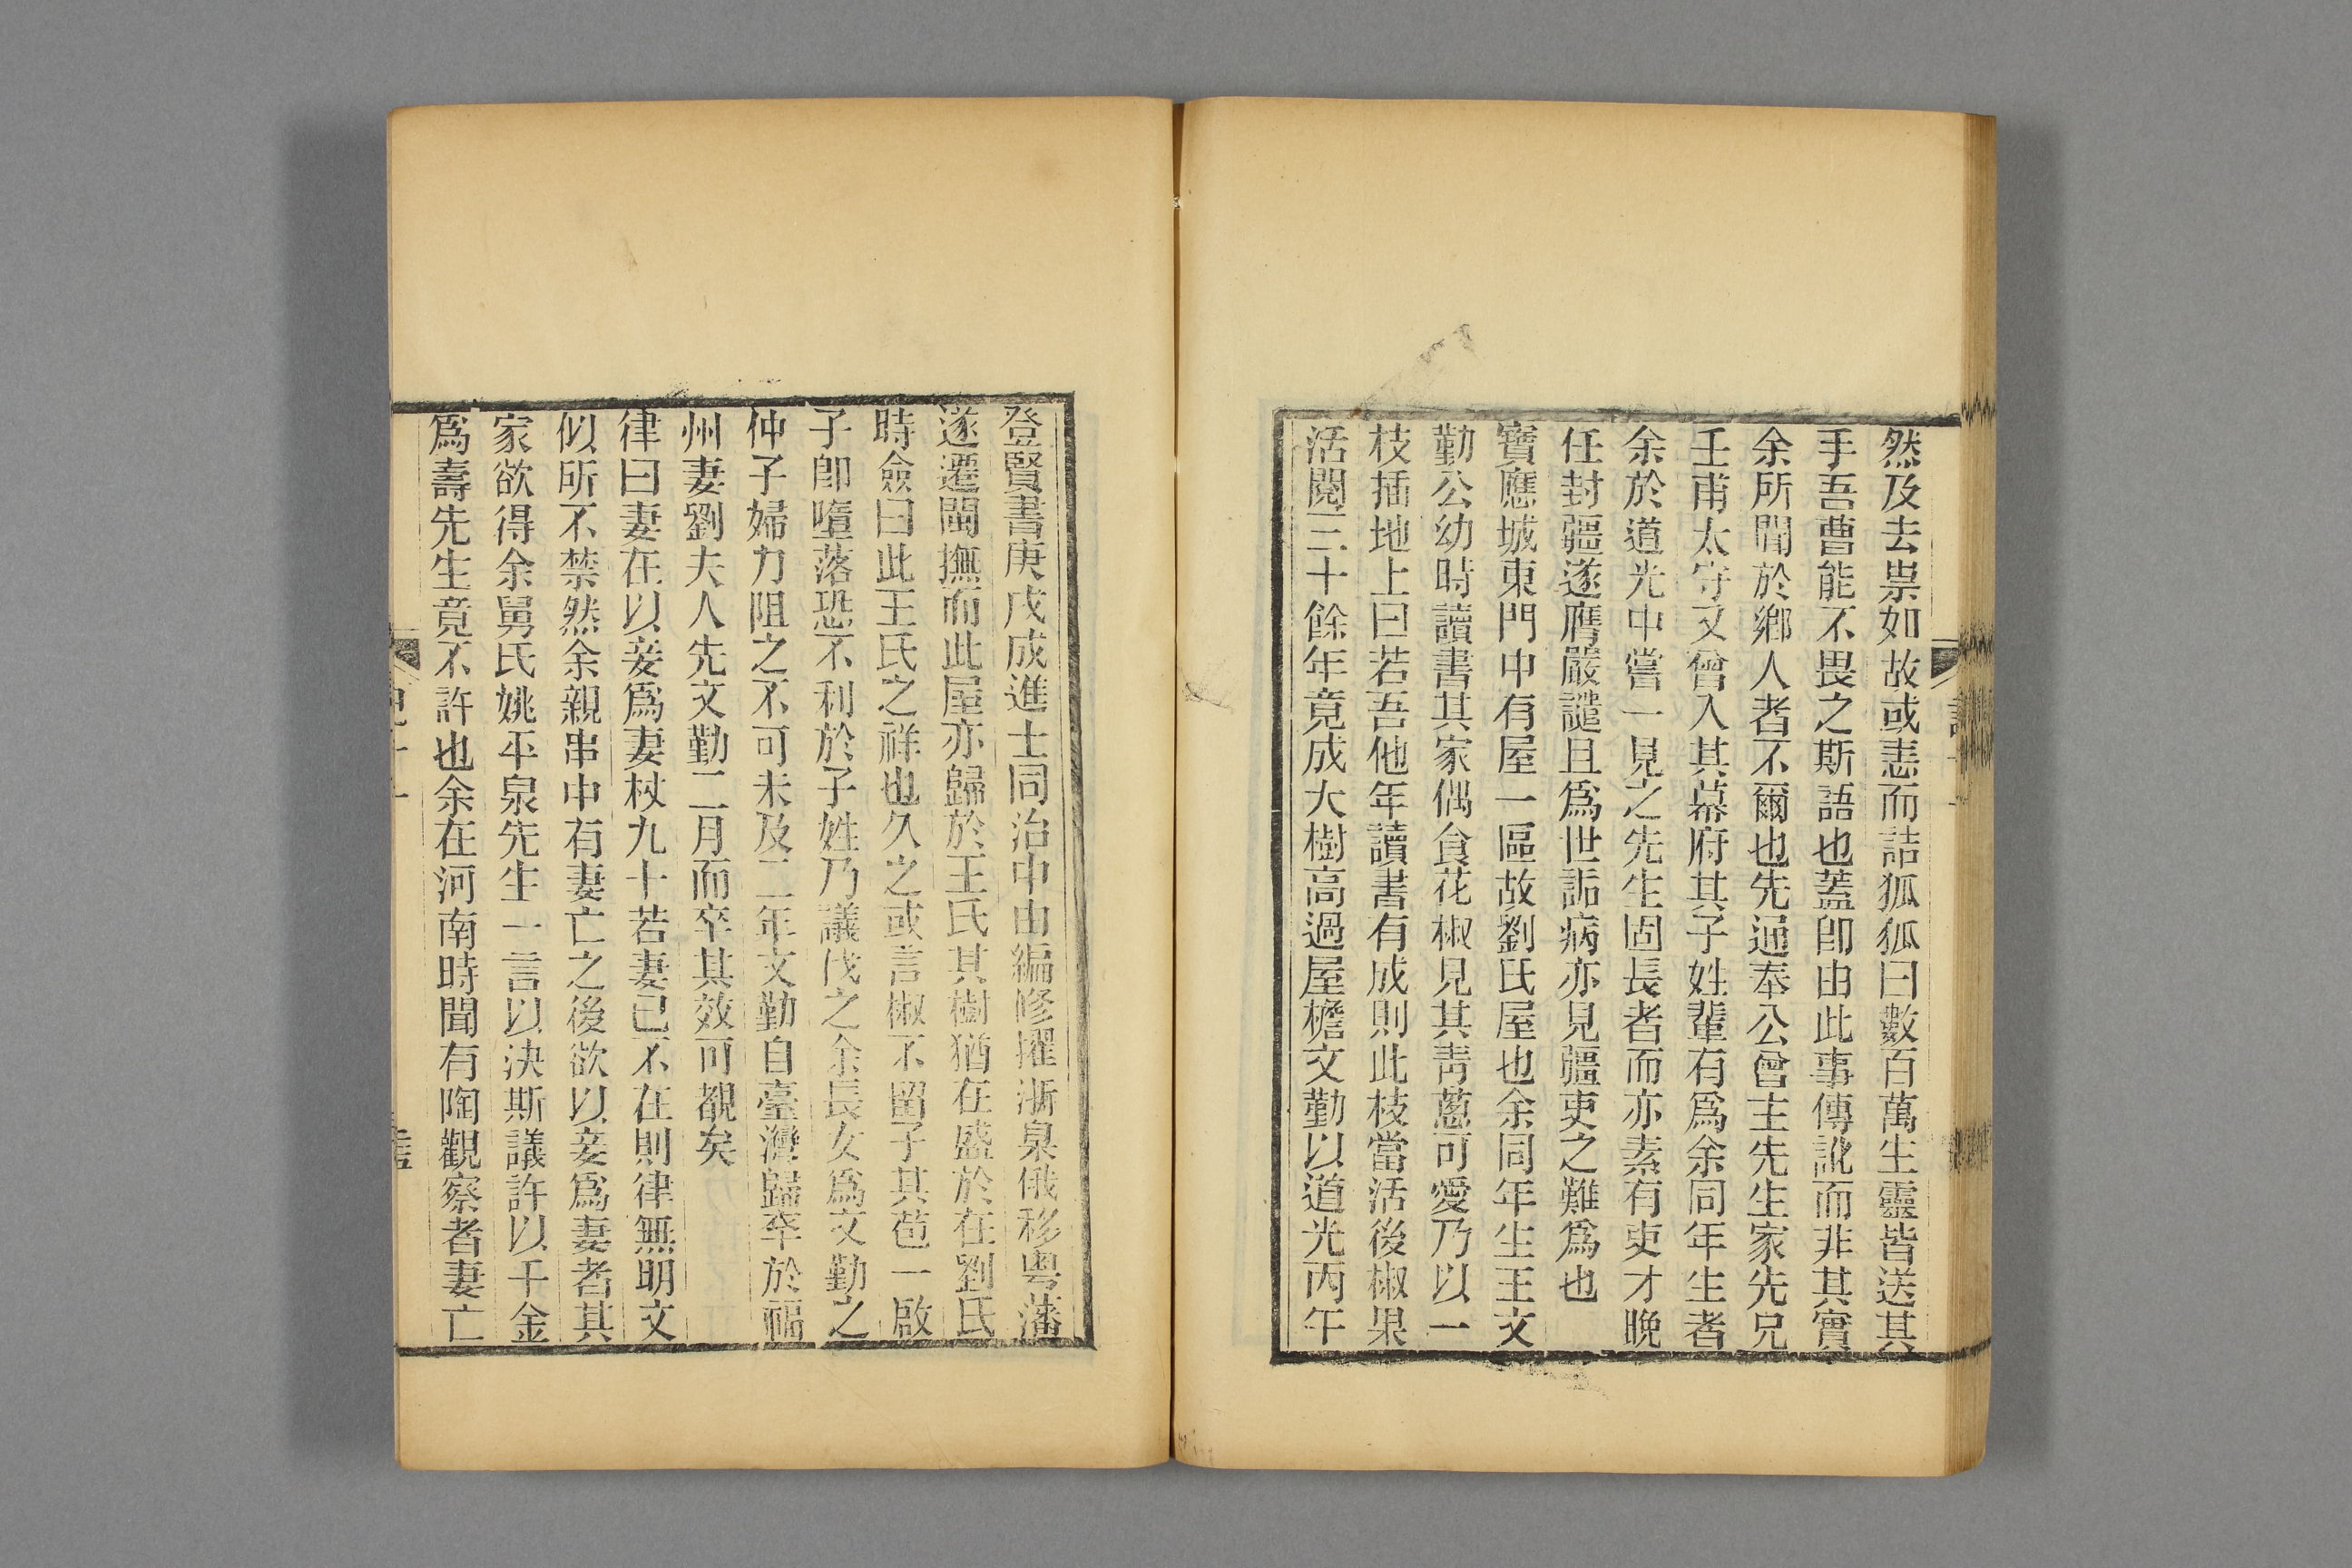 然及去祟如故或恚而詰狐狐曰數百萬生靈皆送其
手吾曹能不畏之斯語也蓋卽由此事傳訛而非其實
余所聞於鄉人者不爾也先通奉公曾主先生家先兄
壬甫太守又曾入其幕府其子姓輩有爲余同年生者
余於道光中嘗一見之先生固長者而亦素有吏才晚
任封疆遂膺嚴譴且爲世詬病亦見疆吏之難爲也
寶應城東門中有屋一區故劉氏屋也余同年生王文
勤公幼時讀書其家偶食花椒見其靑蔥可愛乃以一
枝插地上曰若吾他年讀書有成則此枝當活後椒果
活閱三十餘年竟成大樹高過屋檐文勤以道光丙午
登賢書庚戌成進士同治中由編修擢浙臬俄移粵藩
遂遷閩撫而此屋亦歸於王氏其樹猶在盛於在劉氏
時僉曰此王氏之祥也久之或言椒不留子其苞一啟
子卽墮落恐不利於子姓乃議伐之余長女爲文勤之
仲子婦力阻之不可未及二年文勤自臺灣歸卒於福
州妻劉夫人先文勤二月而卒其效可覩矣
律曰妻在以妾爲妻杖九十若妻已不在則律無明文
似所不禁然余親串中有妻亡之後欲以妾爲妻者其
家欲得余舅氏姚平泉先生一言以決斯議許以千金
爲壽先生竟不許也余在河南時聞有陶觀察者妻亡